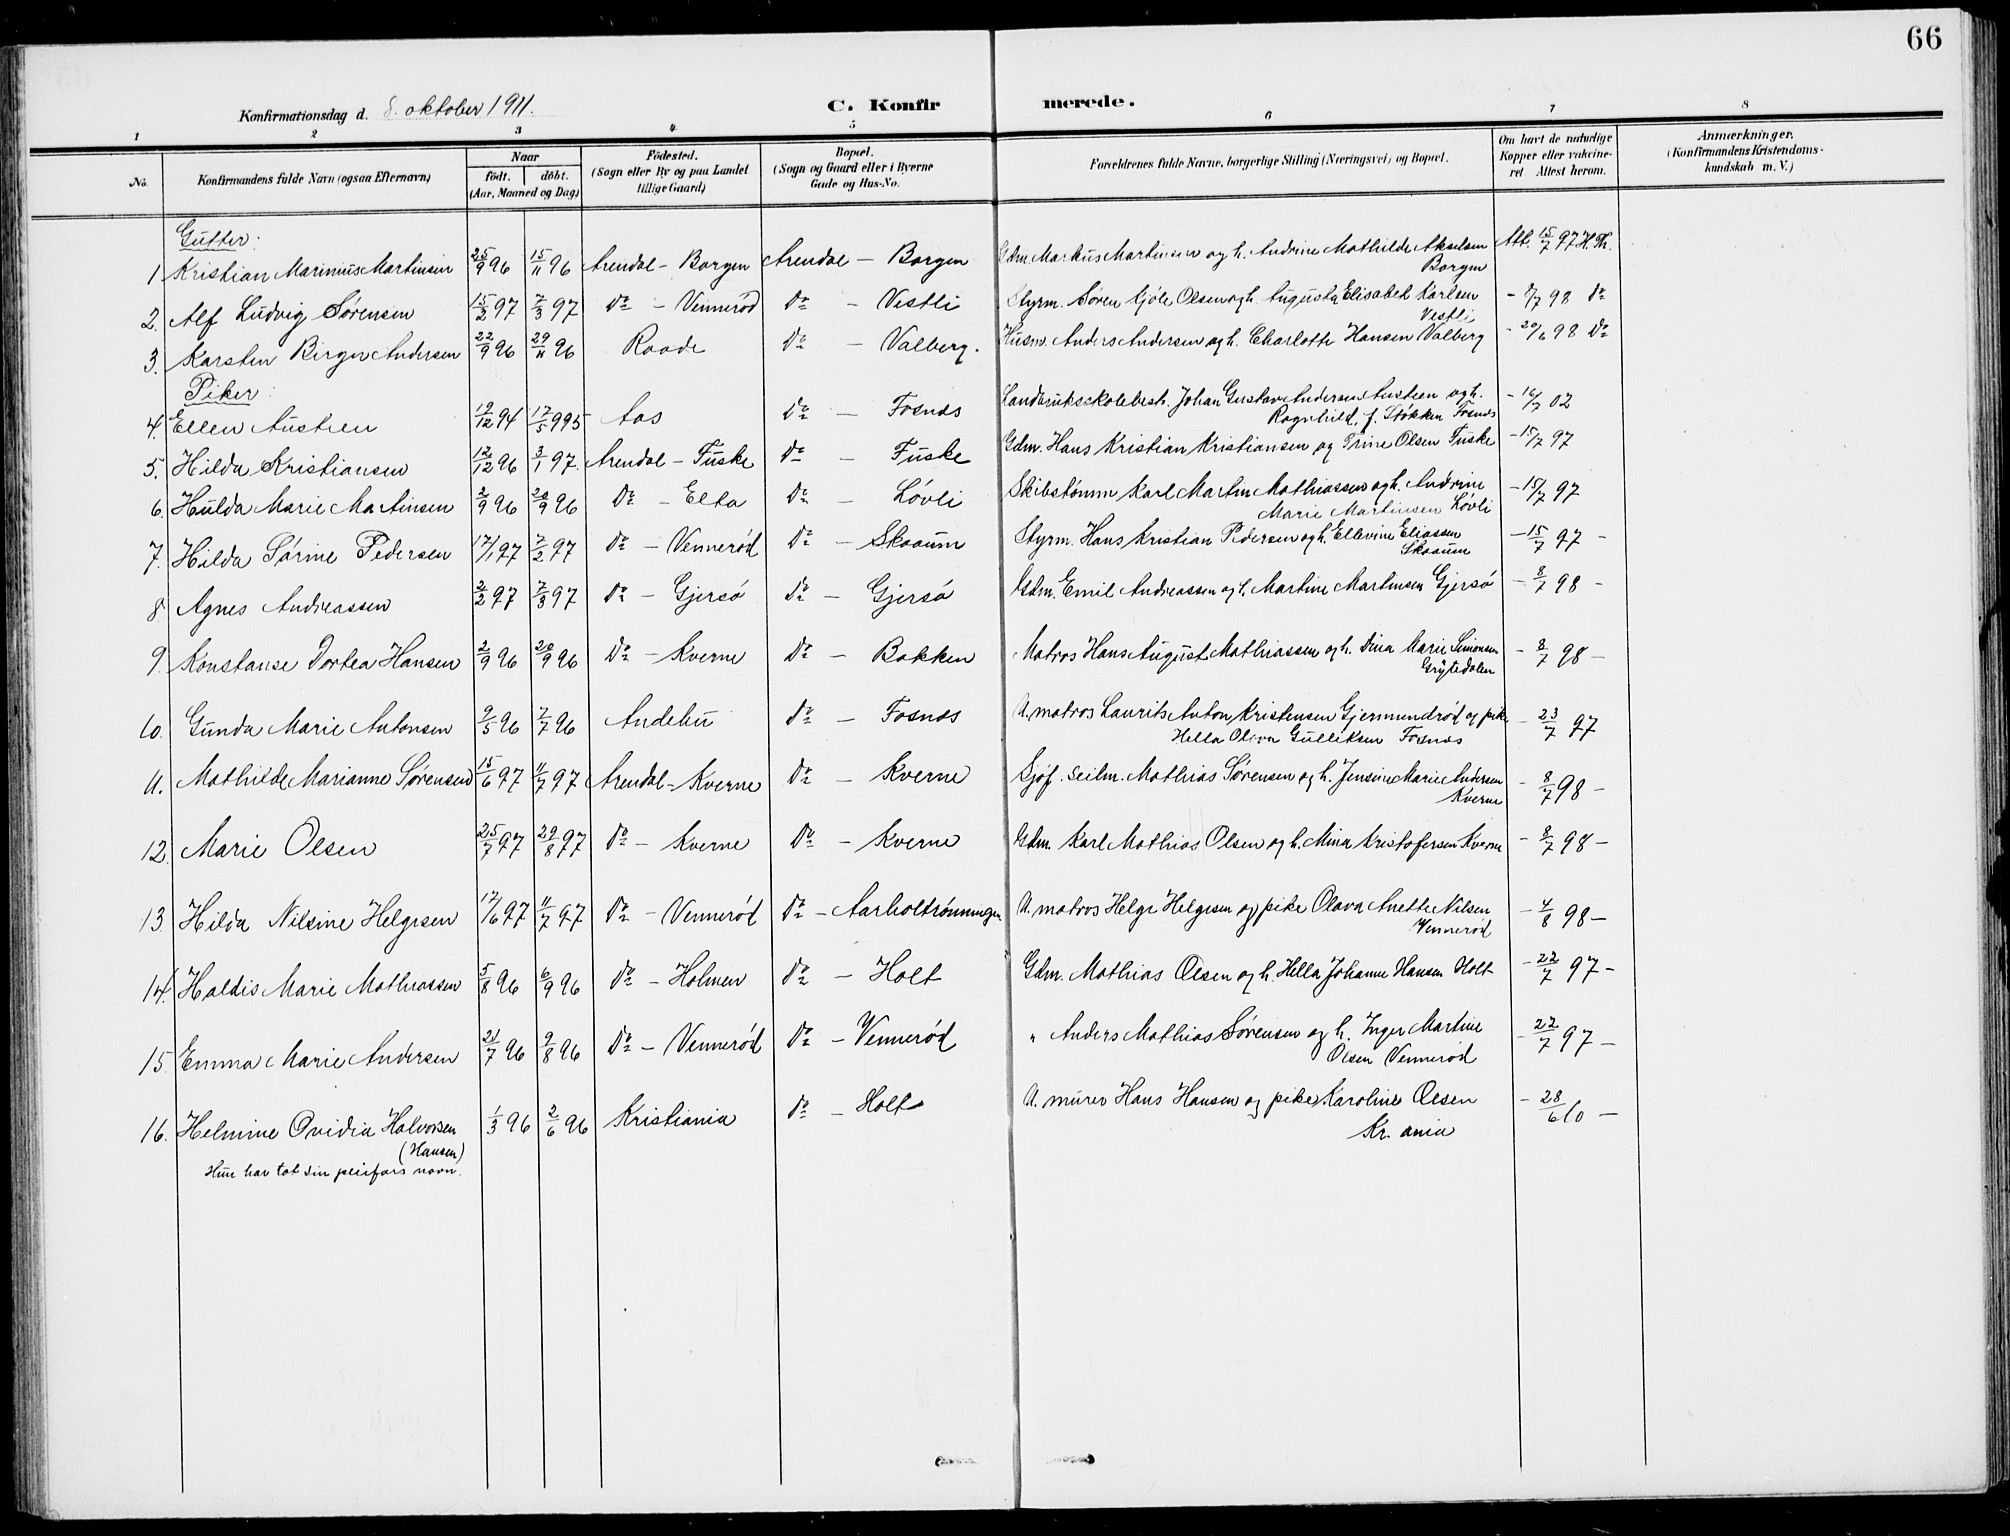 66
Konfirmationsdag d. 8. oktober 1911.
C. Konfir merede.
1 2 3 4 5 6 7 8
No. Konfirmandens fulde Navn (ogsaa Efternavn) Naar födt. döbt. (Aar, Maaned og Dag) Födested. (Sogn eller By og paa Landet tillige Gaard) Bopæl. (Sogn og Gaard eller i Byerne Gade og Hus-No. Forældrenes fulde Navne, borgerlige Stilling (Næringsvei) og Bopæl. Om havt de naturlige Kopper eller vakcineret Attest herom. Anmærkninger. (Konfirmandens Kristendomskundskab m. V.)
Gutter:
1 Kristian Marinius Martinsen 25/9 96 15/11 96 Arendal - Borgen Arendal - Borgen Gdm. Markus Martinsen og h. Andrine Mathilde Akselsen Borgen Att. 15/7 97 H.Th.
2. Alf Ludvig Sørensen 15/2 97 7/3 97 Do - Vennerød Do - Vestli Styrm. Søren Gjøle Olsen og h. Augusta Elisabet Karlsen Vestli - 8/7 98 Do
3. Karsten Birger Andersen 22/9 96 29/11 96 Raade Do - Valberg. Husm. Anders Andersen og h. Charlotte Hansen Valberg - 20/6 98 Do
Piker:
4. Ellen Austeen 19/12 94 17/5 995 Aas Do - Fosnæs Landbruksskolebest. Johan Gustav Andersen Austeen og h. Ragnhild, f. Støkken Fosnæs - 16/7 02
5. Hilda Kristiansen 12/12 96 3/1 97. Arendal - Fuske Do - Fuske Gdm. Hans Kristian Kristiansen og Trine Olsen Fuske - 15/7 97
6. Hulda Marie Martinsen 2/9 96 20/9 96 Do - Elta Do - Løvli Skibstømm Karl Martin Mathiassen og h. Andrine Marie Martinsen Løvli - 15/7 97
7. Hilda Sørine Pedersen 17/1 97 7/2 97 Do - Vennerød Do - Skaaum Styrm. Hans Kristian Pedersen og h. Ellevine Eliassen Skaaum - 15/7 97 -
8 Agnes Andreassen 2/2 97 7/3 97 Do - Gjersø Do - Gjersø Gdm. Emil Andreassen og h. Martine Martinsen Gjersø - 8/7 98 -
9. Konstanse Dortea Hansen 2/9 96 20/9 96 Do - Kverne Do - Bakken Matros Hans August Mathiassen og h. Dina Marie Simonsen Grytedalen - 8/7 98 -
10. Gunda Marie Antonsen 9/5 96 7/7 96 Andebu Do - Fosnæs U. matros Laurits Anton Kristensen Gjermundrød og pike Hella Olava Gulliksen Fosnæs - 23/7 97
11. Mathilde Marianne Sørensen 15/6 97 11/7 97 Arendal - Kverne Do - Kverne Sjøf. seilm. Mathias Sørensen og h. Jensine Marie Andersen Kverne - 8/7 98 -
12. Marie Olsen 25/7 97 29/8 97 Do - Kverne Do - Kverne Gdm. Karl Mathias Olsen og h. Mina Kristofersen Kverne - 8/7 98 -
13. Hilda Nilsine Helgesen 17/6 97 11/7 97 Do - Vennerød Do - Aarholtrønningen U. matros Helge Helgesen og pike Olava Anette Nilsen Vennerød - 4/8 98 -
14. Haldis Marie Mathiassen 5/8 96 6/9 96 Do - Holmen Do - Holt Gdm. Mathias Olsen og h. Hella Johanne Hansen Holt - 22/7 97 -
15. Emma Marie Andersen 21/7 96 9/8 96 Do - Vennerød Do - Vennerød " Anders Mathias Sørensen og h. Inger Martine Olsen Vennerød - 22/7 97 -
16. Helmine Ovidia Halvorsen (Hansen) 1/3 96 2/6 96 Kristiania Do - Holt U. murer Hans Hansen og pike Karoline Olsen Kr. ania - 28/6 10 -
Hun har tat sin pleifars navn.